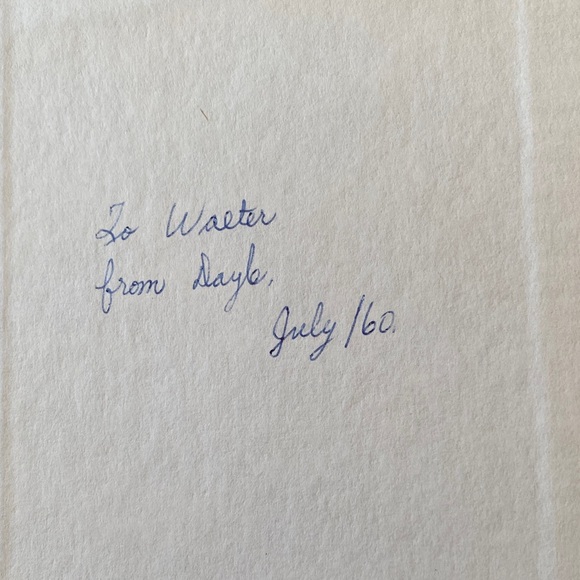 To Walter
from Dayle,
July /60.